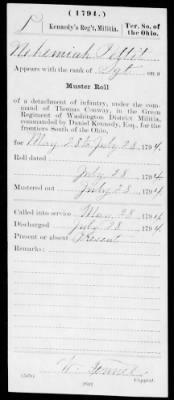 (1794.)
P Kennedy's Reg't, Militia. Ter. So. of the Ohio.
Nehemiah Pettit
Appears with the rank of Sgt. on a
Muster Roll
of a detachment of infantry, under the command of Thomas Conway, in the Green Regiment of Washington District Militia, commanded by Daniel Kennedy, Esq., for the frontiers South of the Ohio,
for May 28 to July 28, 1794
Roll dated
July 28, 1794
Mustered out July 28, 1794
Called into service May 28, 1794
Discharged July 28, 1794
Present or absent Present
Remarks:
Copyist.